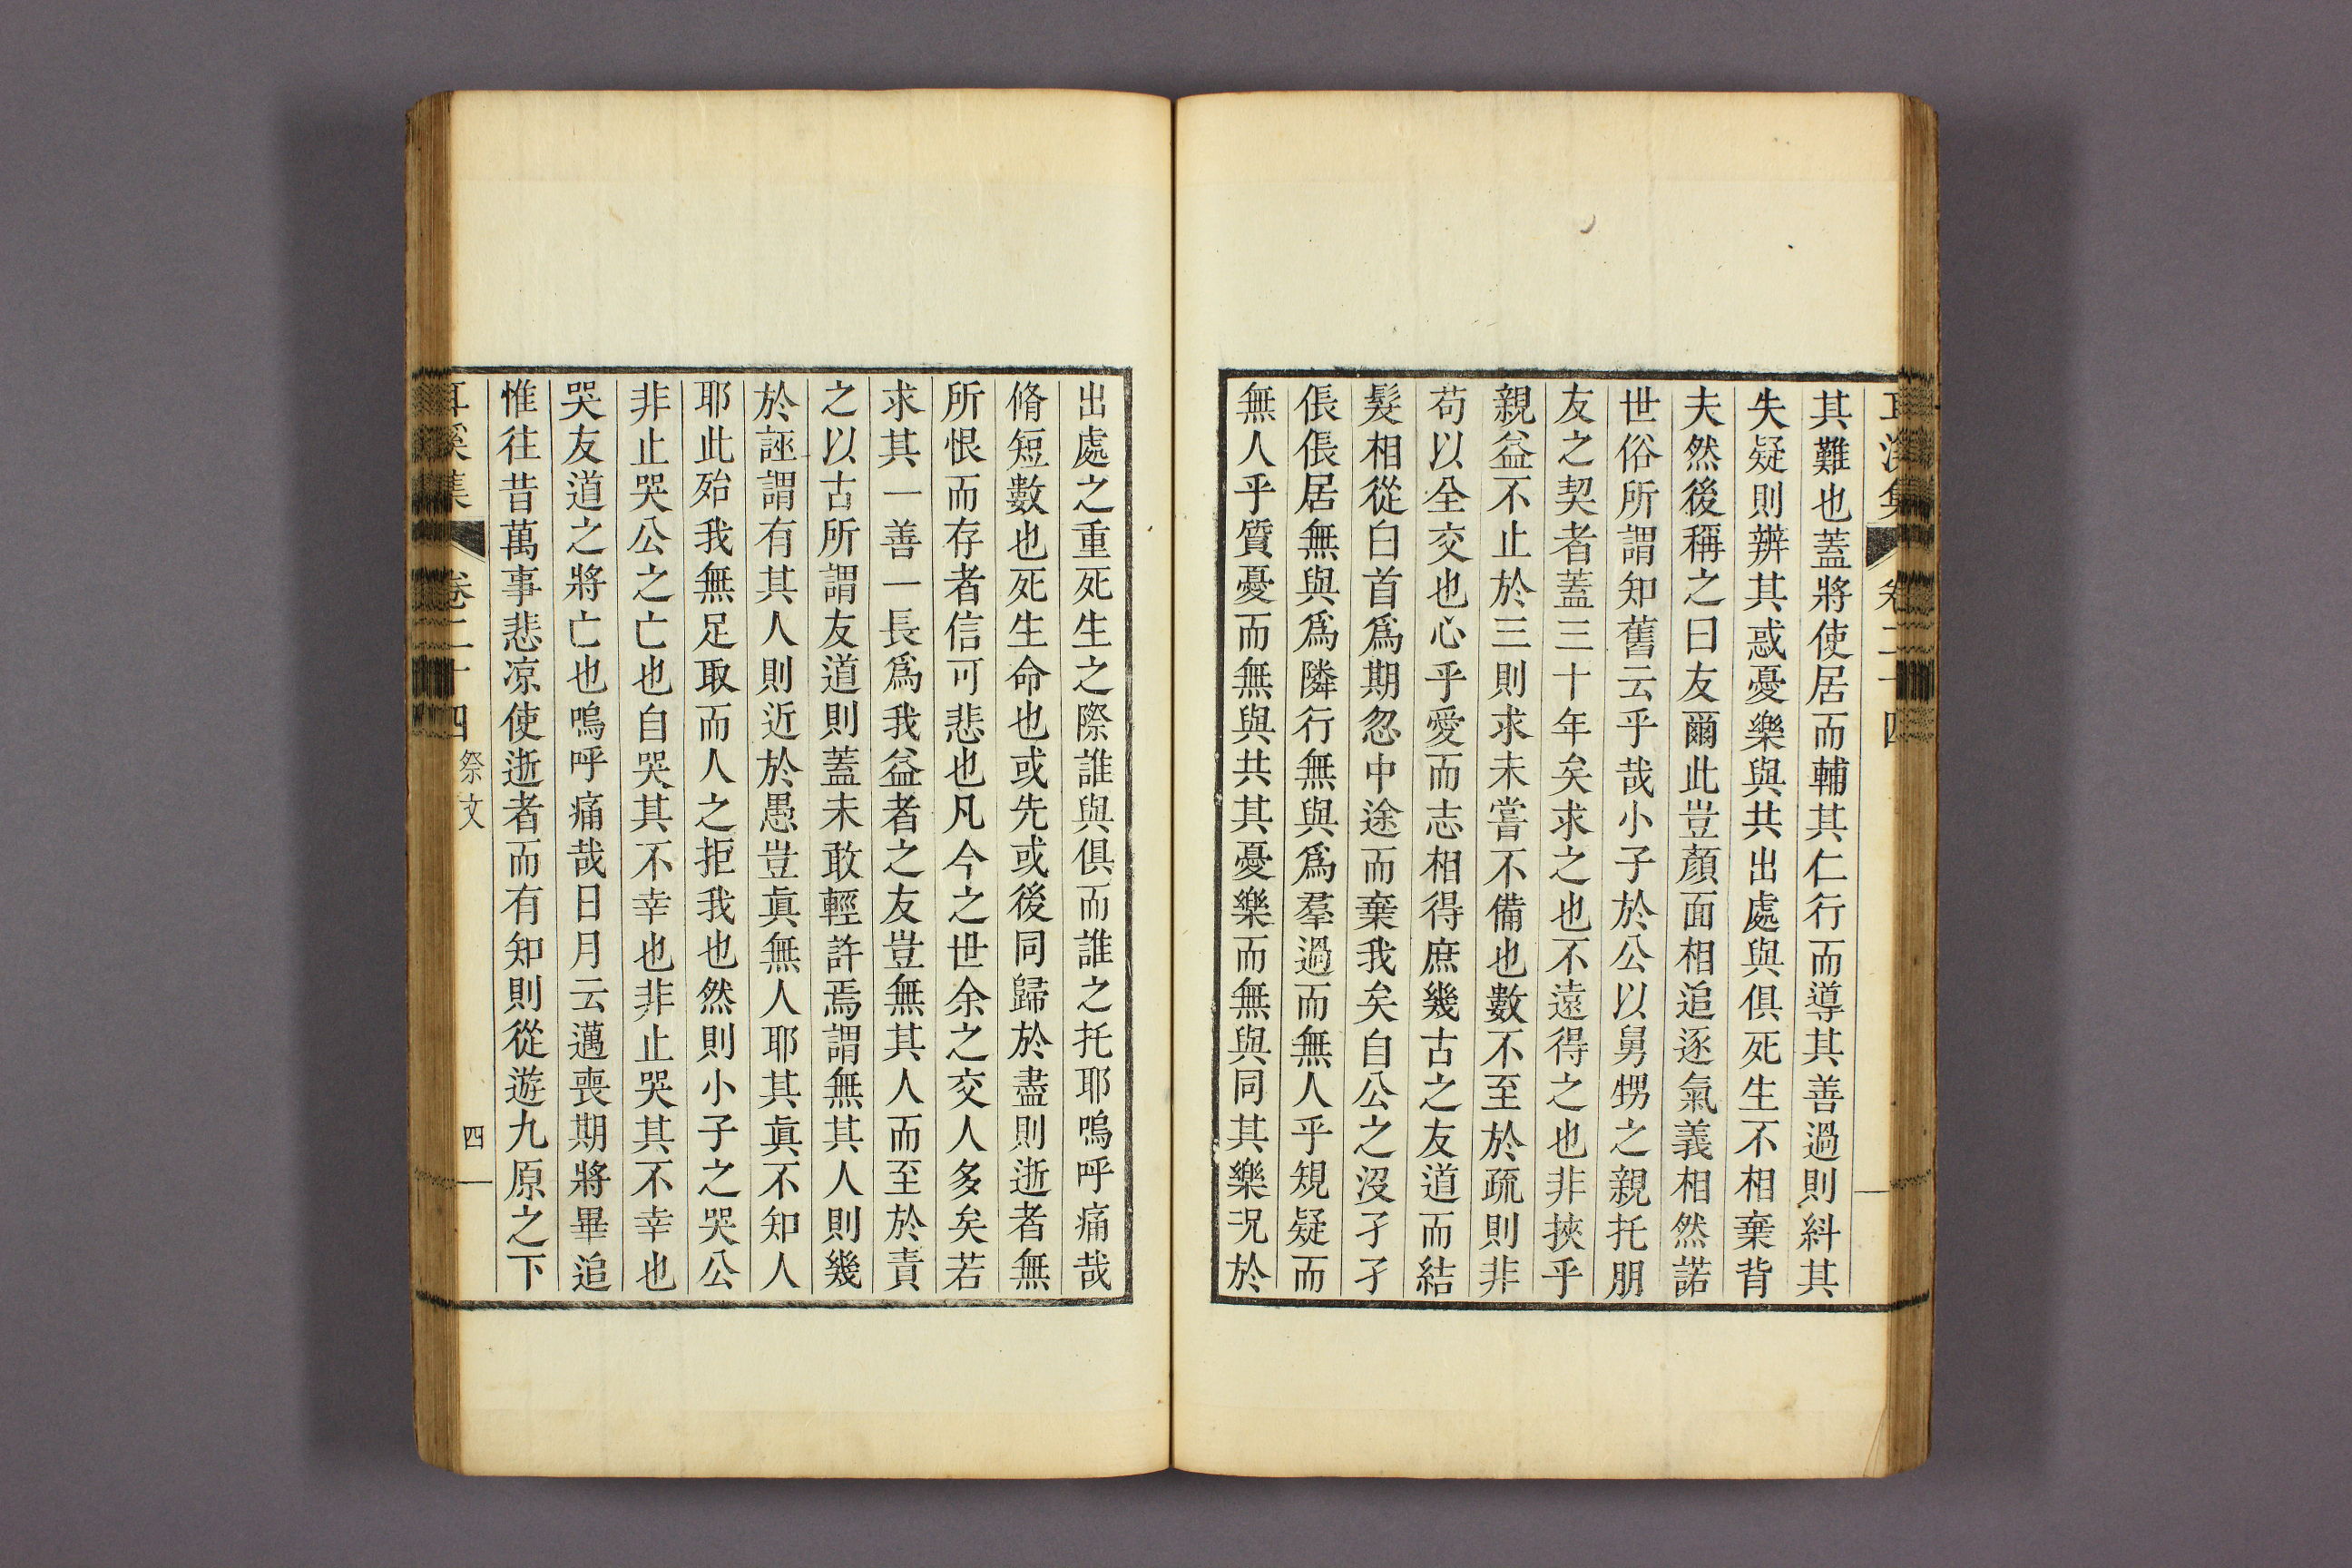 其難也蓋將使居而輔其仁行而導其善過則糾其
失疑則辨其惑憂樂與共出處與俱死生不相棄背
夫然後稱之曰友爾此豈顏面相追逐氣義相然諾
世俗所謂知舊云乎哉小子於公以舅甥之親托朋
友之契者蓋三十年矣求之也不遠得之也非挾乎
親益不止於三則求未嘗不備也數不至於疏則非
苟以全交也心乎愛而志相得庶幾古之友道而結
髮相從白首爲期忽中途而棄我矣自公之沒孑孑
倀倀居無與爲隣行無與爲羣過而無人乎規疑而
無人乎質憂而無與共其憂樂而無與同其樂況於
出處之重死生之際誰與俱而誰之托耶嗚呼痛哉
脩短數也死生命也或先或後同歸於盡則逝者無
所恨而存者信可悲也凡今之世余之交人多矣若
求其一善一長爲我益者之友豈無其人而至於責
之以古所謂友道則蓋未敢輕許焉謂無其人則幾
於誣謂有其人則近於愚豈眞無人耶其眞不知人
耶此殆我無足取而人之拒我也然則小子之哭公
非止哭公之亡也自哭其不幸也非止哭其不幸也
哭友道之將亡也嗚呼痛哉日月云邁喪期將畢追
惟往昔萬事悲凉使逝者而有知則從遊九原之下
卷二十四 祭文 四